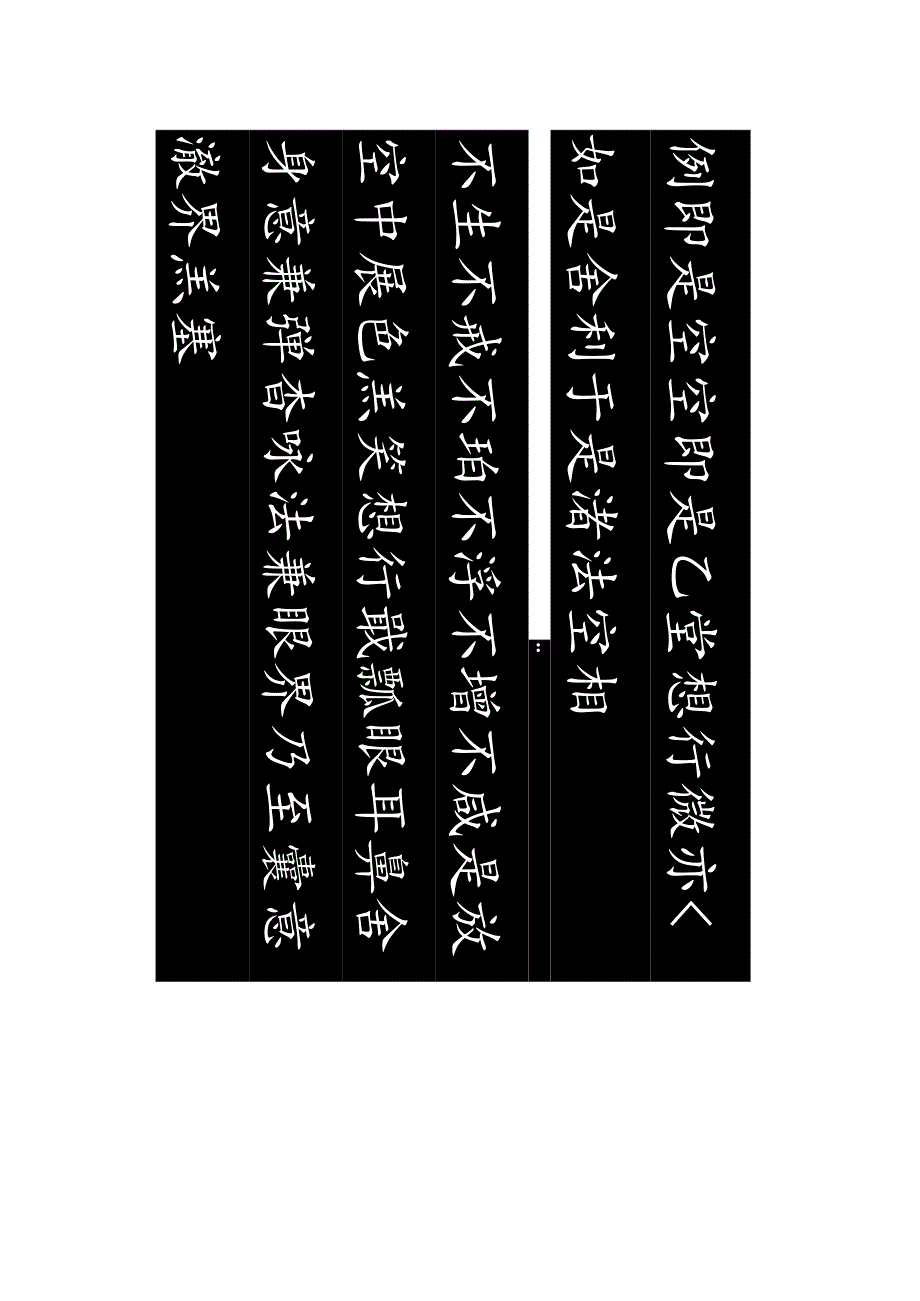 例即是空空即是乙堂想行微亦く
如是舍利于是渚法空相
:
不生不戒不珀不浮不增不咸是放
空中展色羔笑想行戢瓢眼耳鼻舍
身意兼弹香咏法兼眼界乃至囊意
澈界羔塞